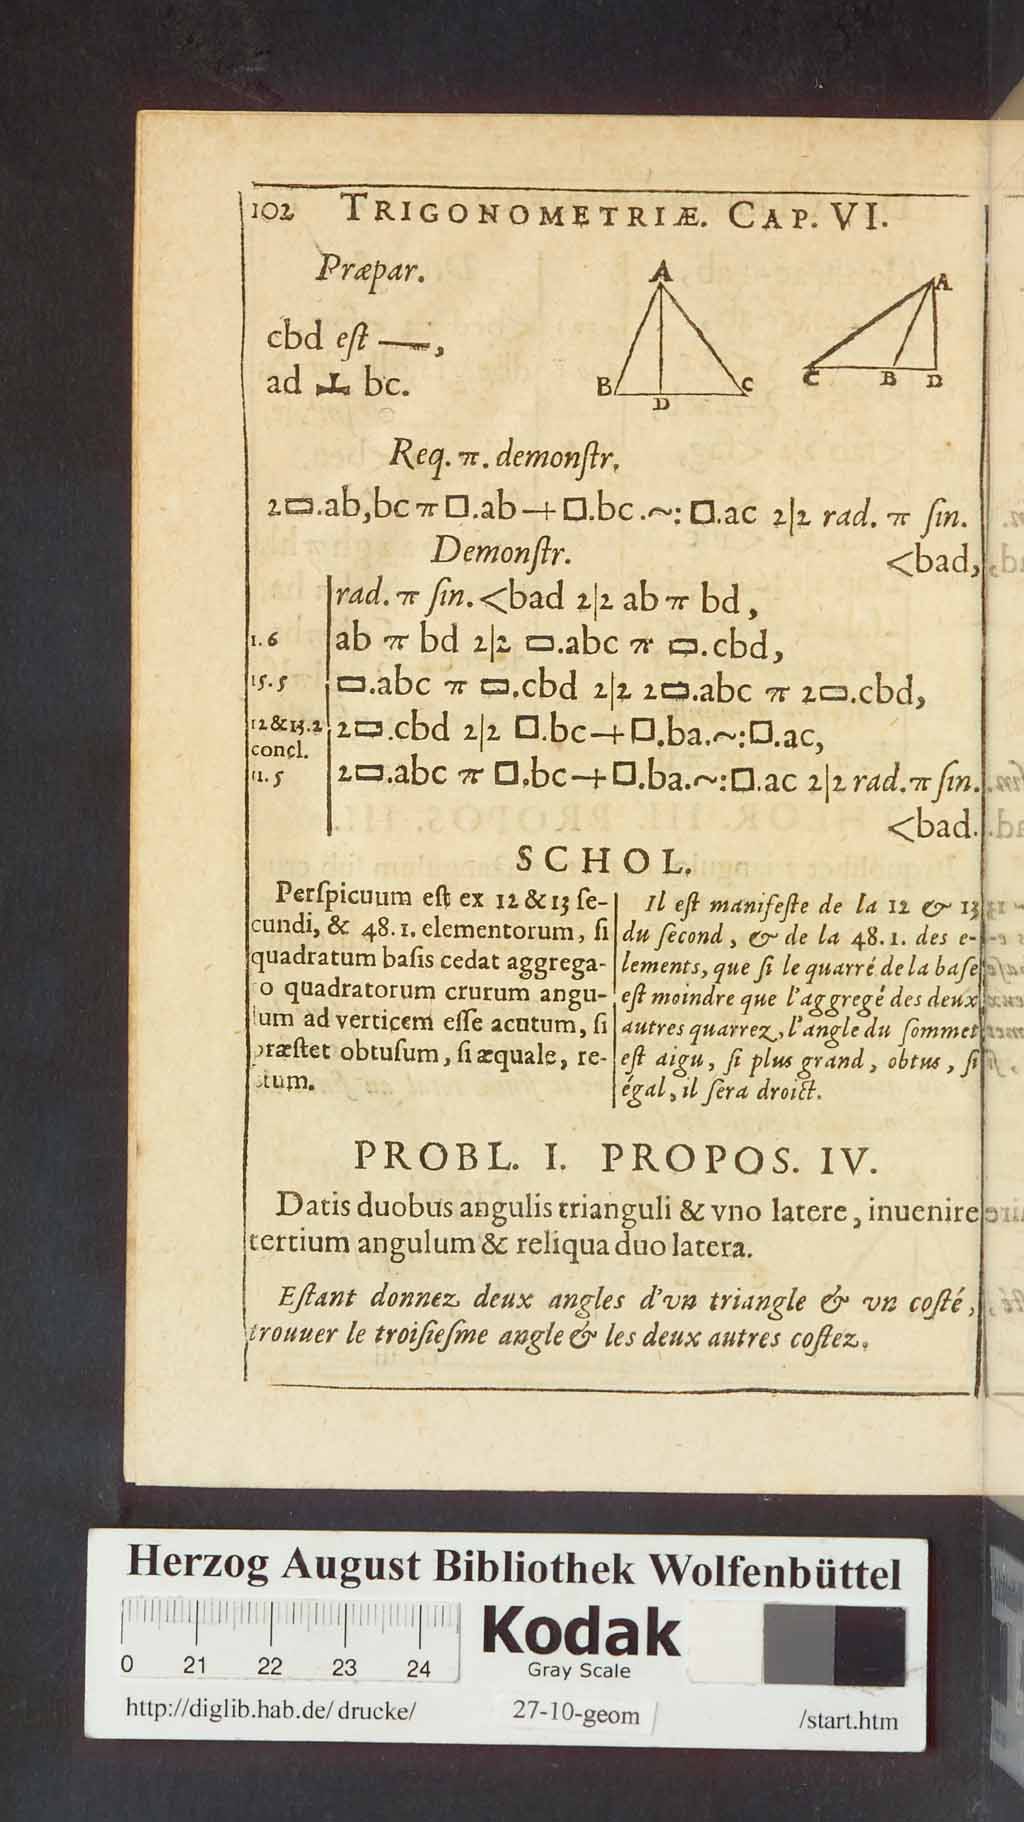 102 TRIGONOMETRIÆ. CAP. VI.
Præpar.
cbd eſt —,
ad ⊥ bc.
A
B
C
D
A
C
B
D
Req. π. demonſtr.
2▭.ab,bc π □.ab + □.bc.~: □.ac 2|2 rad. π ſin.
<bad,
Demonſtr.
rad. π ſin. <bad 2|2 ab π bd,
1.6 ab π bd 2|2 ▭.abc π ▭.cbd,
15.5 ▭.abc π ▭.cbd 2|2 2▭.abc π 2▭.cbd,
12&13.2 2▭.cbd 2|2 □.bc + □.ba.~: □.ac,
concl.
11.5 2▭.abc π □.bc + □.ba.~: □.ac 2|2 rad. π ſin.
<bad.
SCHOL.
Perſpicuum eſt ex 12 & 13 ſe-
cundi, & 48.1. elementorum, ſi
quadratum baſis cedat aggrega-
o quadratorum crurum angu-
lum ad verticem eſſe acutum, ſi
præſtet obtuſum, ſi æquale, re-
ctum.
Il eſt manifeſte de la 12 & 13
du ſecond, & de la 48.1. des e-
lements, que ſi le quarré de la baſe
eſt moindre que l'aggregé des deux
autres quarrez, l'angle du ſommet
eſt aigu, ſi plus grand, obtus, ſi
égal, il ſera droict.
PROBL. I. PROPOS. IV.
Datis duobus angulis trianguli & vno latere, inuenire
tertium angulum & reliqua duo latera.
Eſtant donnez deux angles d'vn triangle & vn coſté,
trouuer le troiſieſme angle & les deux autres coſtez.
Herzog August Bibliothek Wolfenbüttel
0 21 22 23 24
Kodak
Gray Scale
http://diglib.hab.de/drucke/ 27-10-geom /start.htm